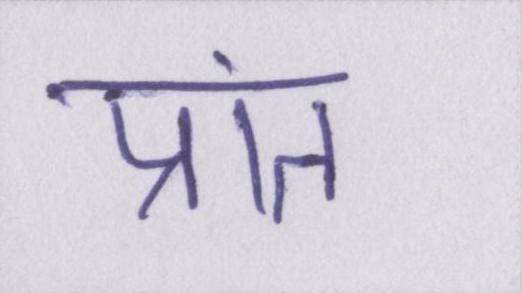 प्रांत